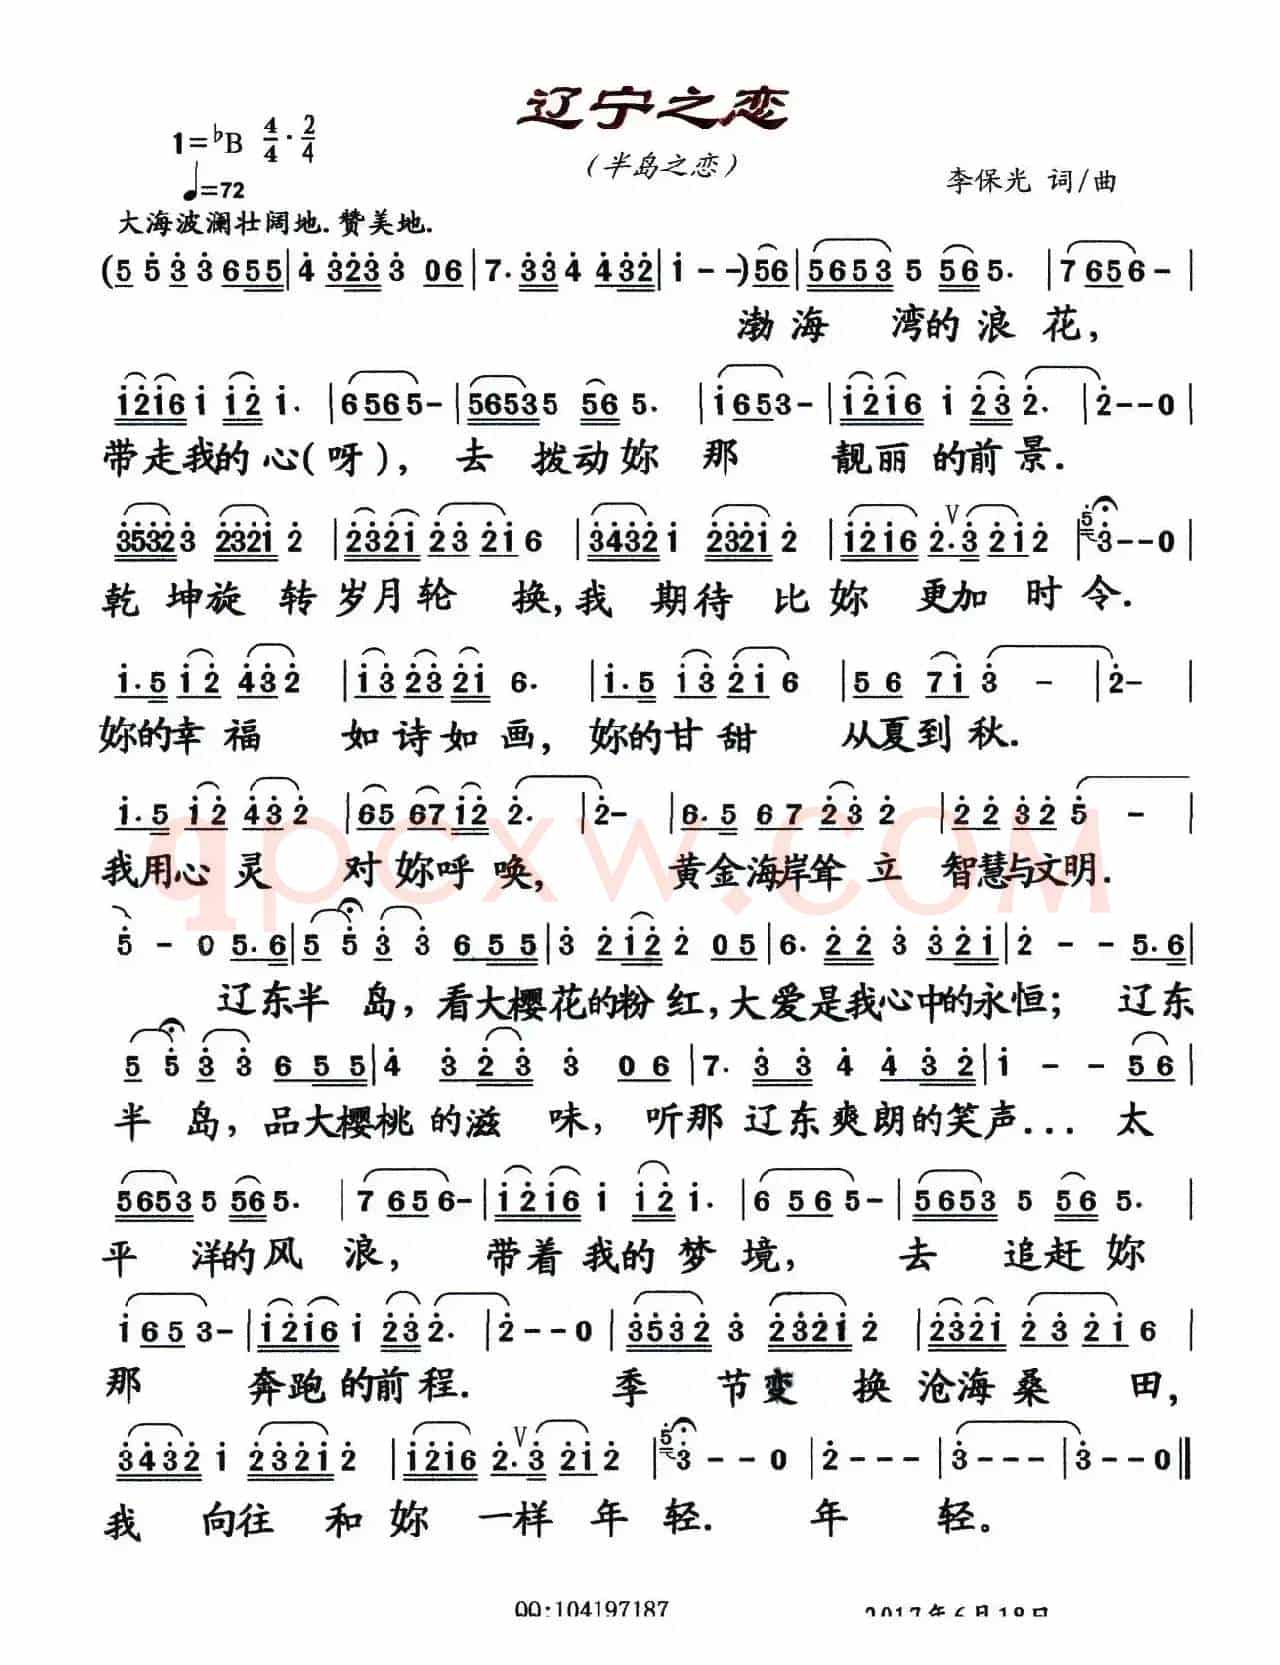 辽宁之恋
(半岛之恋)
1=♭B 4/4·2/4
♩=72
李保光 词/曲
大海波澜壮阔地.赞美地.
(5 5 3 3 6 5 5 | 4 3 2 3 3 0 6 | 7. 3 3 4 4 3 2 | 1 - -) 5 6 | 5 6 5 3 5 5 6 5. | 7 6 5 6 - |
渤海 湾的浪花,
1 2 1 6 1 1 2 1. | 6 5 6 5 - | 5 6 5 3 5 5 6 5. | 1 6 5 3 - | 1 2 1 6 1 2 3 2. | 2 - - 0 |
带走我的心(呀), 去 拨动妳 那 靓丽 的前景.
3 5 3 2 3 2 3 2 1 2 | 2 3 2 1 2 3 2 1 6 | 3 4 3 2 1 2 3 2 1 2 | 1 2 1 6 2. 3 2 1 2 | 5 3 - - 0 |
乾 坤旋 转 岁月轮 换,我 期待 比 妳 更加 时 令.
1. 5 1 2 4 3 2 | 1 3 2 3 2 1 6. | 1. 5 1 3 2 1 6 | 5 6 7 1 3 - | 2 - |
妳的幸 福 如诗如画, 妳的甘甜 从夏到秋.
1. 5 1 2 4 3 2 | 6 5 6 7 1 2 2. | 2 - | 6. 5 6 7 2 3 2 | 2 2 3 2 5 - |
我用心 灵 对 妳呼 唤, 黄金海岸耸 立 智慧与文明.
5 - 0 5. 6 | 5 5 3 3 6 5 5 | 3 2 1 2 2 0 5 | 6. 2 2 3 3 2 1 | 2 - - 5. 6 |
辽东半 岛, 看大樱花的粉红,大爱是我心中的永恒; 辽东
5 5 3 3 6 5 5 | 4 3 2 3 3 0 6 | 7. 3 3 4 4 3 2 | 1 - - 5 6 |
半 岛, 品大樱桃 的滋 味, 听那 辽东爽朗的笑声... 太
5 6 5 3 5 5 6 5. | 7 6 5 6 - | 1 2 1 6 1 1 2 1. | 6 5 6 5 - | 5 6 5 3 5 5 6 5. |
平 洋的风 浪, 带着我的梦境, 去 追赶妳
1 6 5 3 - | 1 2 1 6 1 2 3 2. | 2 - - 0 | 3 5 3 2 3 2 3 2 1 2 | 2 3 2 1 2 3 2 1 6 |
那 奔跑的前程. 季 节变 换 沧海桑 田,
3 4 3 2 1 2 3 2 1 2 | 1 2 1 6 2. 3 2 1 2 | 5 3 - - 0 | 2 - - - | 3 - - - | 3 - - 0 ‖
我 向往 和妳 一样年轻. 年 轻。
QQ:104197187
2017年6月18日
qpcxw.COM